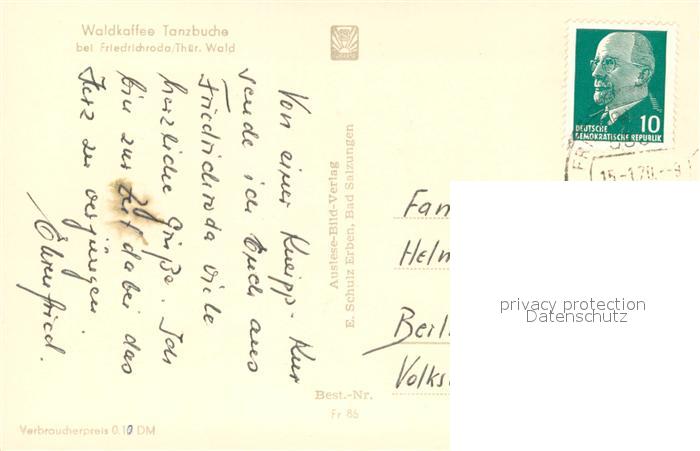 Waldkaffee Tanzbuche
bei Friedrichroda/Thür. Wald
Von einer Kneipp-Kur
sende ich Euch aus
Friedrichroda viele
herzliche Grüße. Ich
bin zur Zeit dabei das
Herz zu verjüngen.
Ehrenfried.
Auslese-Bild-Verlag
E. Schulz Erben, Bad Salzungen
Best.-Nr.
Fr 86
Verbraucherpreis 0.10 DM
10
DEUTSCHE
DEMOKRATISCHE REPUBLIK
FR
15-1.70.-9
Fam
Helm
Berli
Volks
privacy protection
Datenschutz